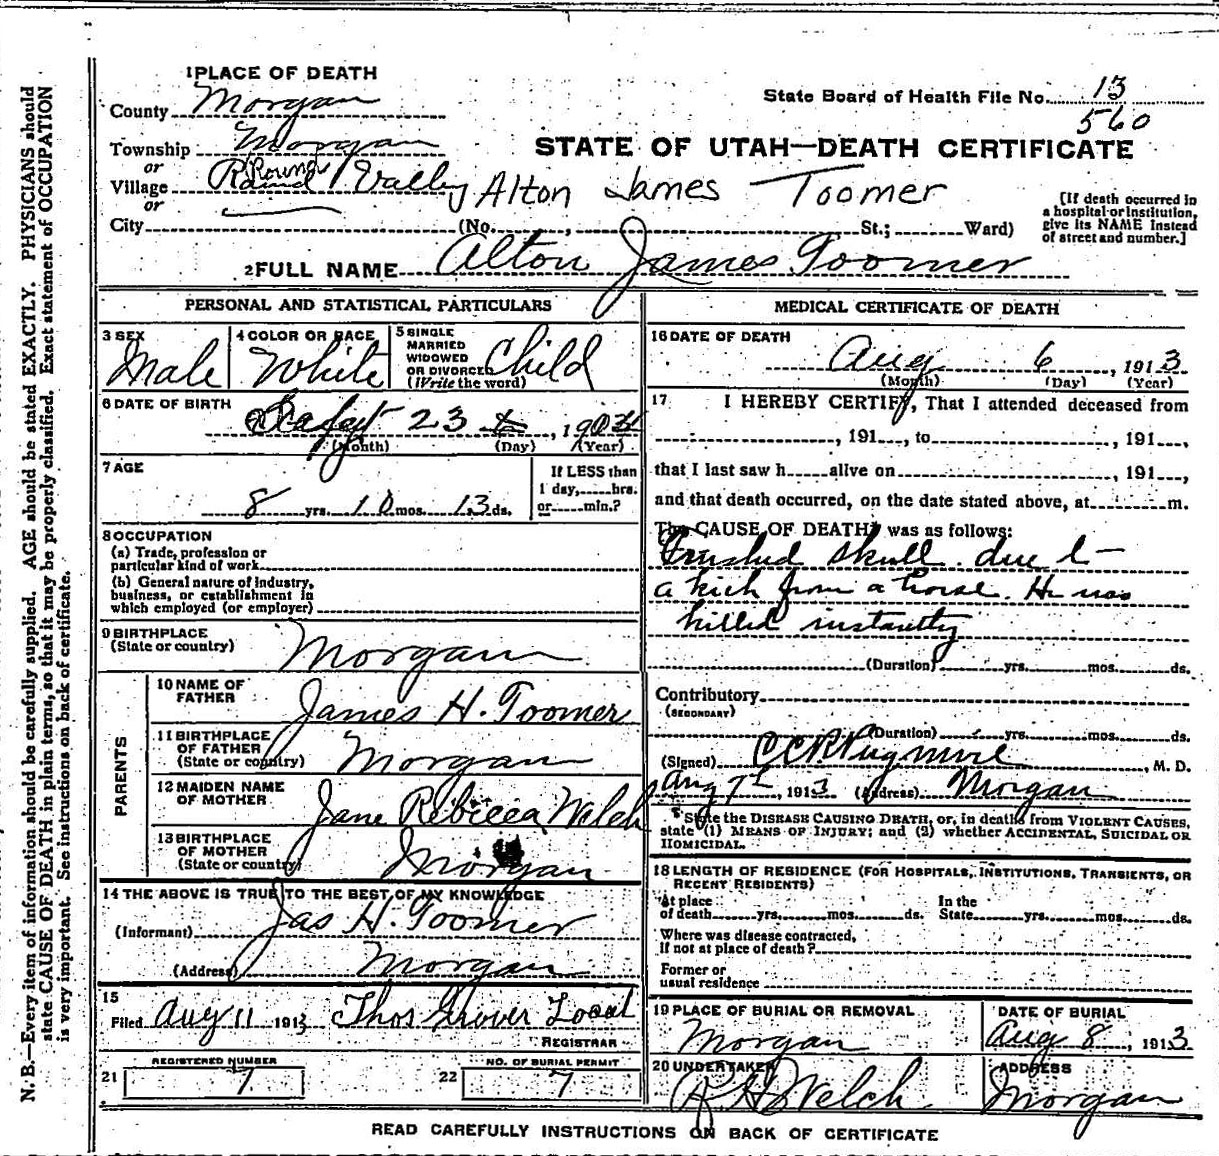 1 PLACE OF DEATH
County Morgan
State Board of Health File No. 13
560
Township Morgan
STATE OF UTAH—DEATH CERTIFICATE
or
Village Round Round Valley
Alton James Toomer
or
City (No. , St.; Ward)
[If death occurred in
a hospital or institution,
give its NAME instead
of street and number.]
2 FULL NAME Alton James Toomer
PERSONAL AND STATISTICAL PARTICULARS
3 SEX
Male
4 COLOR OR RACE
White
5 SINGLE
MARRIED
WIDOWED
OR DIVORCED
(Write the word)
Child
6 DATE OF BIRTH
23 , 190
(Month) (Day) (Year)
7 AGE
8 yrs. 10 mos. 13 ds.
If LESS than
1 day, hrs.
or min.?
8 OCCUPATION
(a) Trade, profession or
particular kind of work
(b) General nature of industry,
business, or establishment in
which employed (or employer)
9 BIRTHPLACE
(State or country)
Morgan
PARENTS
10 NAME OF
FATHER
James H. Toomer
11 BIRTHPLACE
OF FATHER
(State or country)
Morgan
12 MAIDEN NAME
OF MOTHER
Jane Rebecca Welch
13 BIRTHPLACE
OF MOTHER
(State or country)
Morgan
14 THE ABOVE IS TRUE TO THE BEST OF MY KNOWLEDGE
(Informant) Jas H. Toomer
(Address) Morgan
15
Filed Aug 11 1913 Thos Grover Local
REGISTRAR
REGISTERED NUMBER
21 7
NO. OF BURIAL PERMIT
22 7
MEDICAL CERTIFICATE OF DEATH
16 DATE OF DEATH
Aug 6, 1913
(Month) (Day) (Year)
17 I HEREBY CERTIFY, That I attended deceased from
, 191 , to , 191 ,
that I last saw h alive on , 191 ,
and that death occurred, on the date stated above, at m.
The CAUSE OF DEATH was as follows:
Crushed skull due to
a kick from a horse. He was
killed instantly
(Duration) yrs. mos. ds.
Contributory
(SECONDARY)
(Duration) yrs. mos. ds.
(Signed) C C R Pugmire, M. D.
Aug 7th, 1913 (Address) Morgan
* State the DISEASE CAUSING DEATH, or, in deaths from VIOLENT CAUSES,
state (1) MEANS OF INJURY; and (2) whether ACCIDENTAL, SUICIDAL OR
HOMICIDAL.
18 LENGTH OF RESIDENCE (FOR HOSPITALS, INSTITUTIONS, TRANSIENTS, OR
RECENT RESIDENTS)
At place
of death yrs. mos. ds.
In the
State yrs. mos. ds.
Where was disease contracted,
if not at place of death?
Former or
usual residence
19 PLACE OF BURIAL OR REMOVAL
Morgan
DATE OF BURIAL
Aug 8, 1913
20 UNDERTAKER
R H Welch
ADDRESS
Morgan
READ CAREFULLY INSTRUCTIONS ON BACK OF CERTIFICATE
N. B.—Every item of information should be carefully supplied. AGE should be stated EXACTLY. PHYSICIANS should
state CAUSE OF DEATH in plain terms, so that it may be properly classified. Exact statement of OCCUPATION
is very important. See instructions on back of certificate.